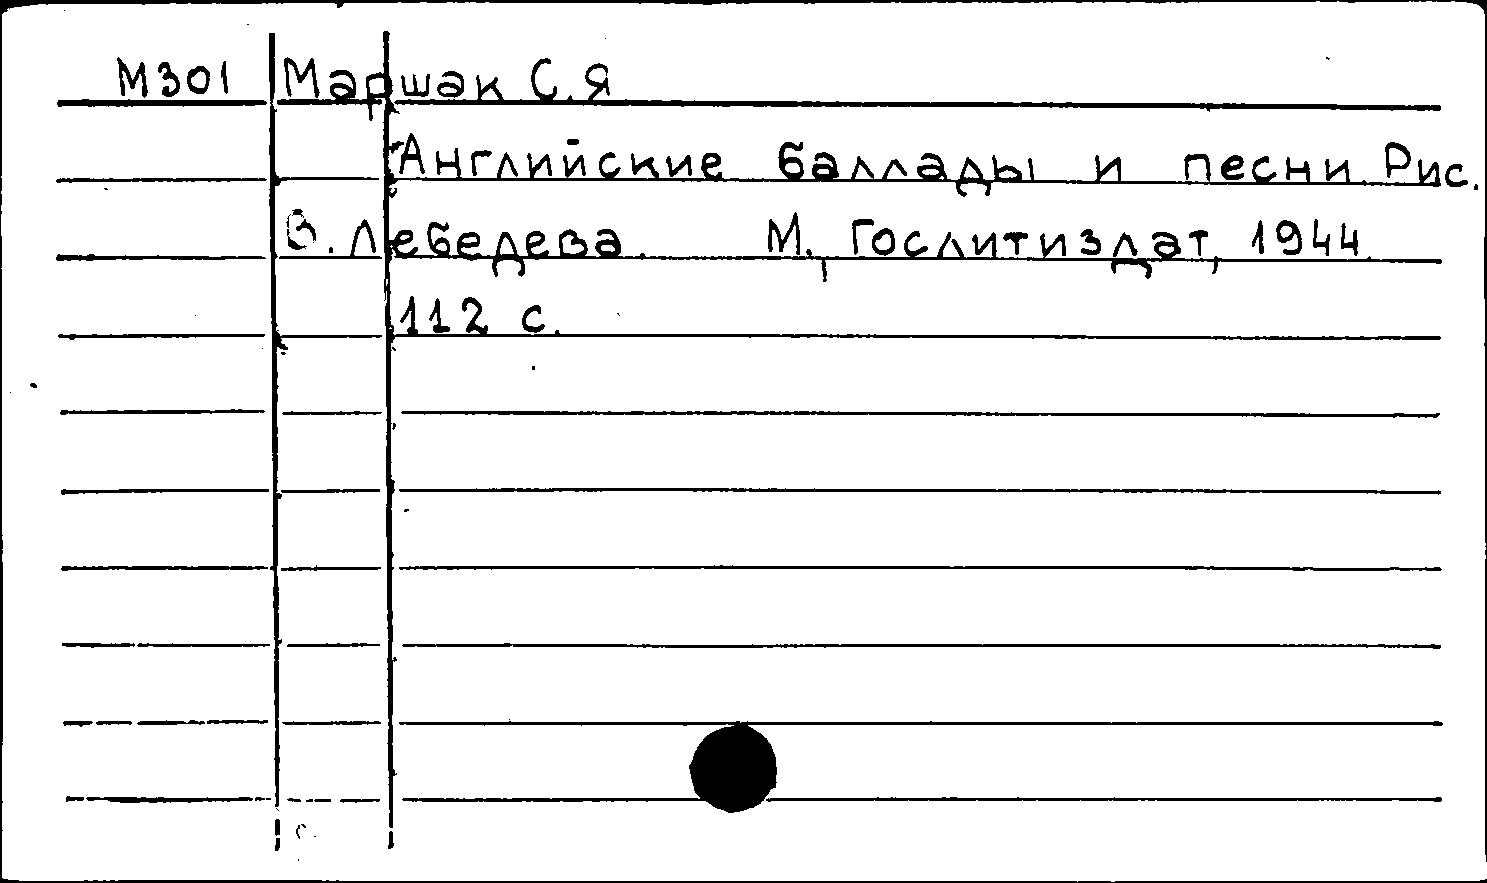 М301 Маршак С.Я
Английские баллады и песни Рис.
В. Лебедева. М., Гослитиздат, 1944.
112 с.